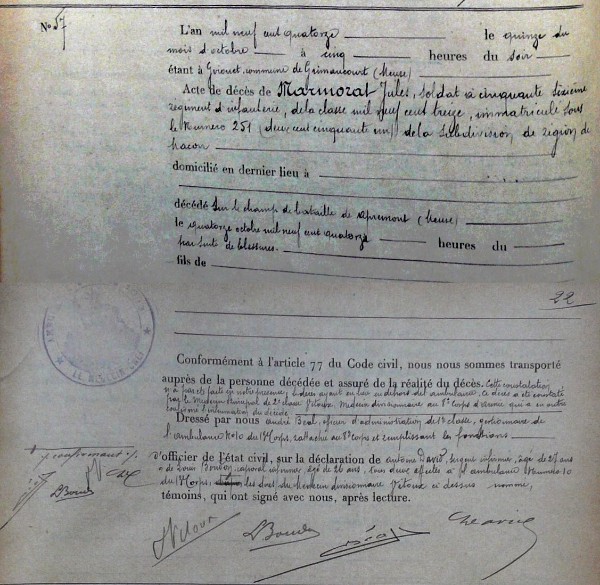 N° 57
L'an mil neuf cent quatorze le quinze du
mois d'octobre à cinq heures du soir
étant à Girouet, commune de Grimaucourt (Meuse)
Acte de décès de Marmorat Jules, soldat à cinquante sixième
régiment d'infanterie, de la classe mil neuf cent treize, immatriculé sous
le Numéro 251 (deux cent cinquante un) de la Subdivision de région de
Macon
domicilié en dernier lieu à
décédé sur le champ de bataille de Apremont (Meuse)
le quatorze octobre mil neuf cent quatorze heures du
par suite de blessures.
fils de
22
Conformément à l'article 77 du Code civil, nous nous sommes transporté
auprès de la personne décédée et assuré de la réalité du décès. Cette constatation
n'a pas été faite en notre présence, le décès ayant eu lieu en dehors de l'ambulance. Ce décès a été constaté
par le Médecin principal de 2e classe Vitoux, Médecin divisionnaire au 8e Corps d'armée qui a en outre
l'inhumation du décédé.
Dressé par nous André Béal, officier d'administration de classe, gestionnaire de
l'ambulance N° 10 du Corps, rattaché au 8e corps et remplissant les fonctions
d'officier de l'état civil, sur la déclaration de Antoine David, sergent infirmier, âgé de 27 ans
et de Louis Boudon, caporal infirmier, âgé de 26 ans, tous deux affectés à l'ambulance Numéro 10
du Corps, les dires du Médecin divisionnaire Vitoux ci dessus nommé,
témoins, qui ont signé avec nous, après lecture.
Vitoux